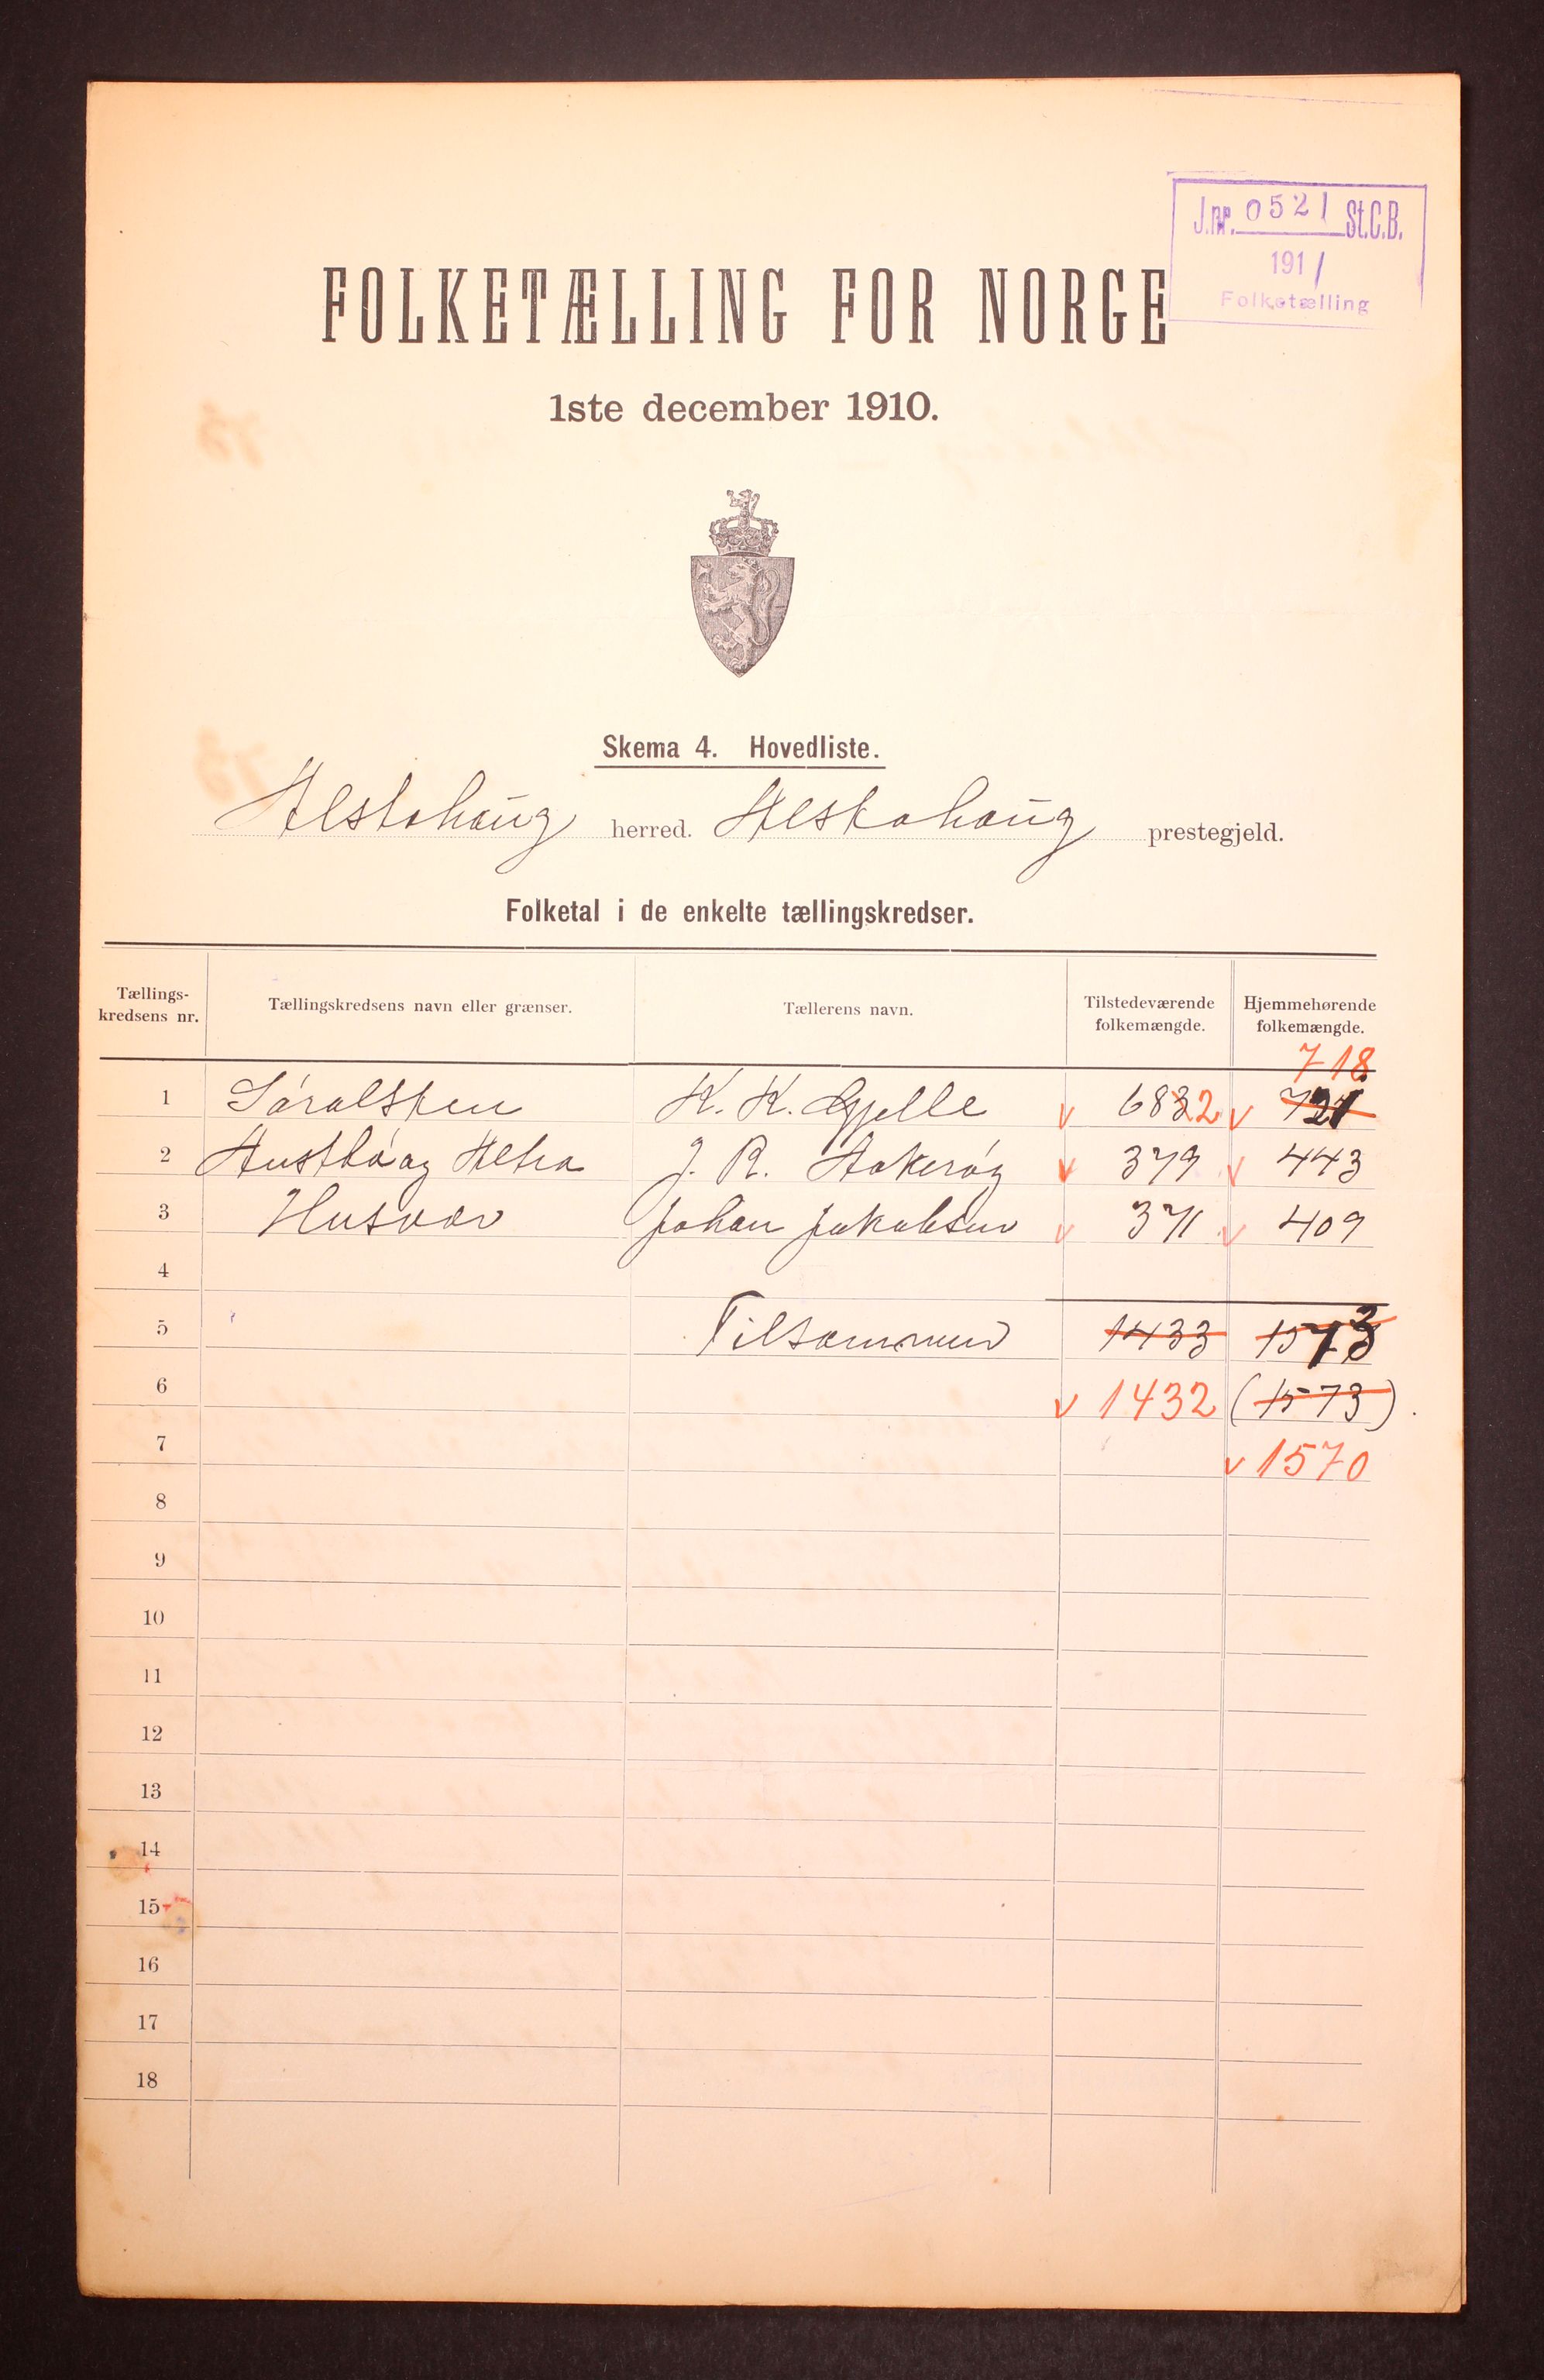 J.nr. 0521 St.C.B.
1911
Folketælling
FOLKETÆLLING FOR NORGE
1ste december 1910.
Skema 4. Hovedliste.
Alstahaug herred. Alstahaug prestegjeld.
Folketal i de enkelte tællingskredser.
Tællings-kredsens nr. Tællingskredsens navn eller grænser. Tællerens navn. Tilstedeværende folkemængde. Hjemmehørende folkemængde.
718
1 Søralsten K. K. Gjelle v 6832 v 721
2 Austbø og Altra J. R. Aakerøy v 379 v 443
3 Husvær Johan Jakobsen v 371 v 409
4
5 Tilsammen 1433 1573
6 v 1432 (1573).
7 v 1570
8
9
10
11
12
13
14
15
16
17
18